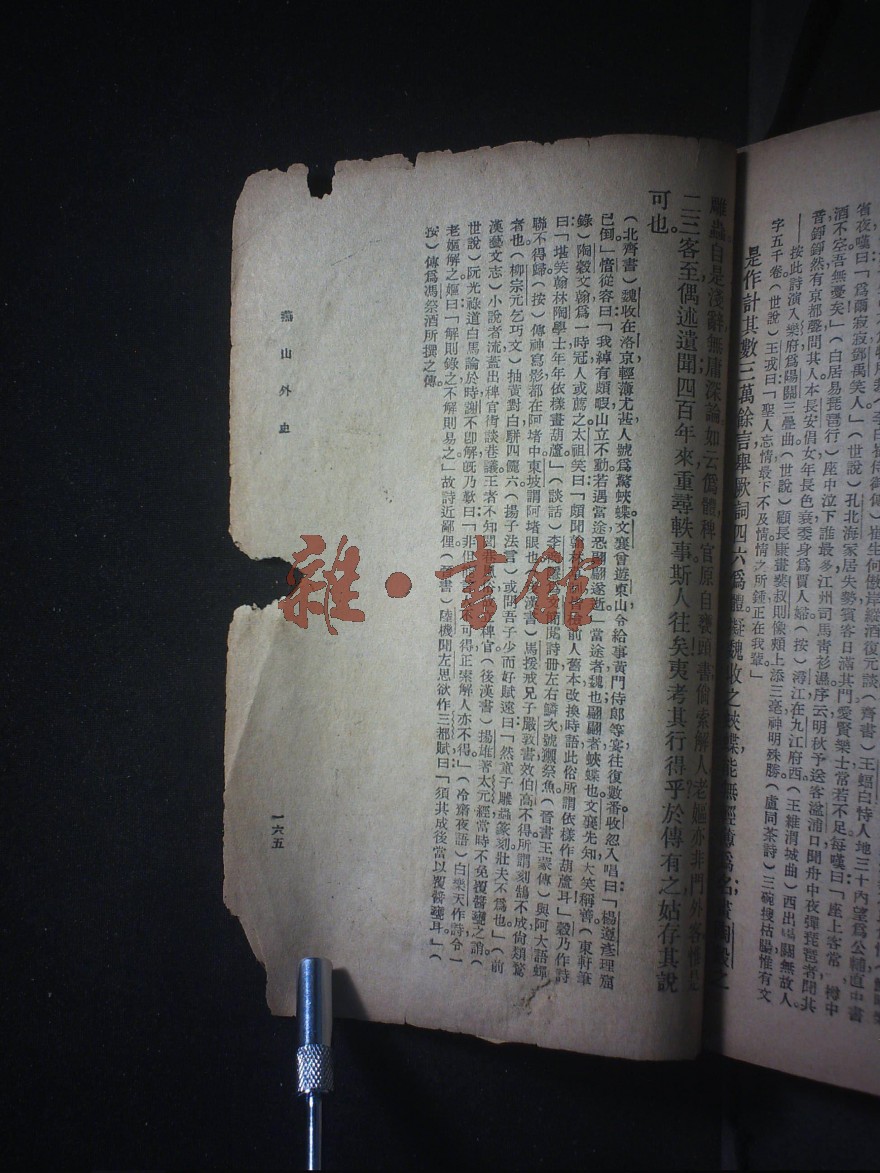 省夜嘆曰「爲爾寂寂鄧禹笑人」(世說)孔北海家居失勢賓客日滿其門愛賢樂士常若不足每嘆曰「座上客常 樽中
酒不空吾無憂矣」(白居易琵琶行)座中泣下誰最多江州司馬靑衫濕序云明秋予送客湓浦口聞舟中夜彈琵琶者聞其
音錚錚然有京都聲問其人本長安倡女年長色衰委身爲賈人婦(按)潯江在九江府西(王維渭城曲)西出陽關無故人
——按此詩演入樂府爲陽關三疊曲(世說)顧長康畫裴叔則像頰上添三毫神明殊勝(盧同茶詩)三碗搜枯腸惟有文
字五千卷(世說)王戎曰「聖人忘情最下不及情情之所鍾正在我輩」
是作計其數三萬餘言舉厥詞四六爲體擬魏收之蛺蝶能無輕
雕蟲自是淺辭無庸深論如云僞體稗官原自褻頭書倘索解人老嫗亦非門外客惟是
二三客至偶述遺聞四百年來重尋軼事斯人往矣夷考其行得乎於傳有之姑存其說
可也。
(北齊書)魏收在洛京輕薄尤甚人號爲驚蛺蝶文襄曾遊東山令給事黃門侍郞等宴往復數番收忽入唱曰「楊遵彥理窟
已倒」愔從容曰「我綽有頗暇山立不動若遇當途恐翩翩遂逝」當途者魏也翩翩者蛺蝶也文襄先知大笑稱善(東軒筆
錄)陶穀文翰爲一時冠人或薦之太祖笑曰「頗聞翰林 前人舊本改換時語此俗所謂依樣作葫蘆耳」穀乃作詩
曰「堪笑翰林陶學士年年依樣畫葫蘆」(談話)李 文 閱詩冊左右鱗次號獺祭魚(晉書王蒙傳)與阿大語蟬
聯不得歸(按)傳神寫影都在阿堵中東坡謂阿堵眼也(漢書)馬援戒兄子嚴敦書效伯高不得所謂刻鵠不成尙類鶩
者也(柳宗元乞巧文)抽黃對白駢四儷六(揚子法言)或問吾子少而好賦遠曰「然童子雕蟲篆刻壯夫不爲也」(前
漢藝文志)小說者流蓋出稗官街談巷議王者不知閭巷風俗 稗官(後漢書)揚雄著太元經當時不免覆醬甕之誚(
世說)阮光祿道白馬論於時謝不卽解旣乃歎曰「非但 不可得正索解人亦不得」(冷齋夜語)白樂天作詩令一
老嫗解之嫗曰「解則錄之不解則易之」故詩近鄙俚(晉書)陸機聞左思欲作三都賦曰「須其成後當以覆醬甕耳」(
按)傳爲馮祭酒所撰之傳。
燕山外史
一六五
雜·書館